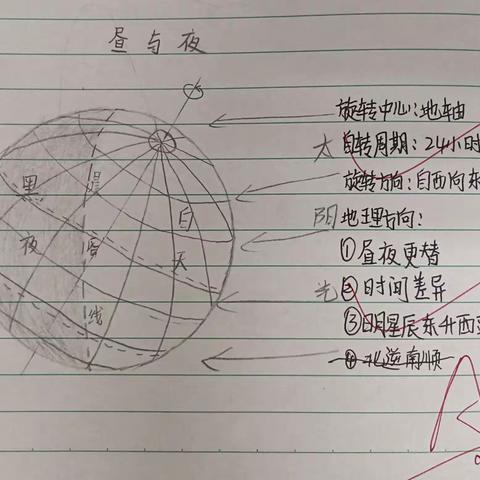 昼与夜
黑夜
晨昏线
白天
太阳光
旋转中心:地轴
自转周期:24小时
旋转方向:自西向东
地理方向:
①昼夜更替
②时间差异
③日月星辰东升西
④北逆南顺
A